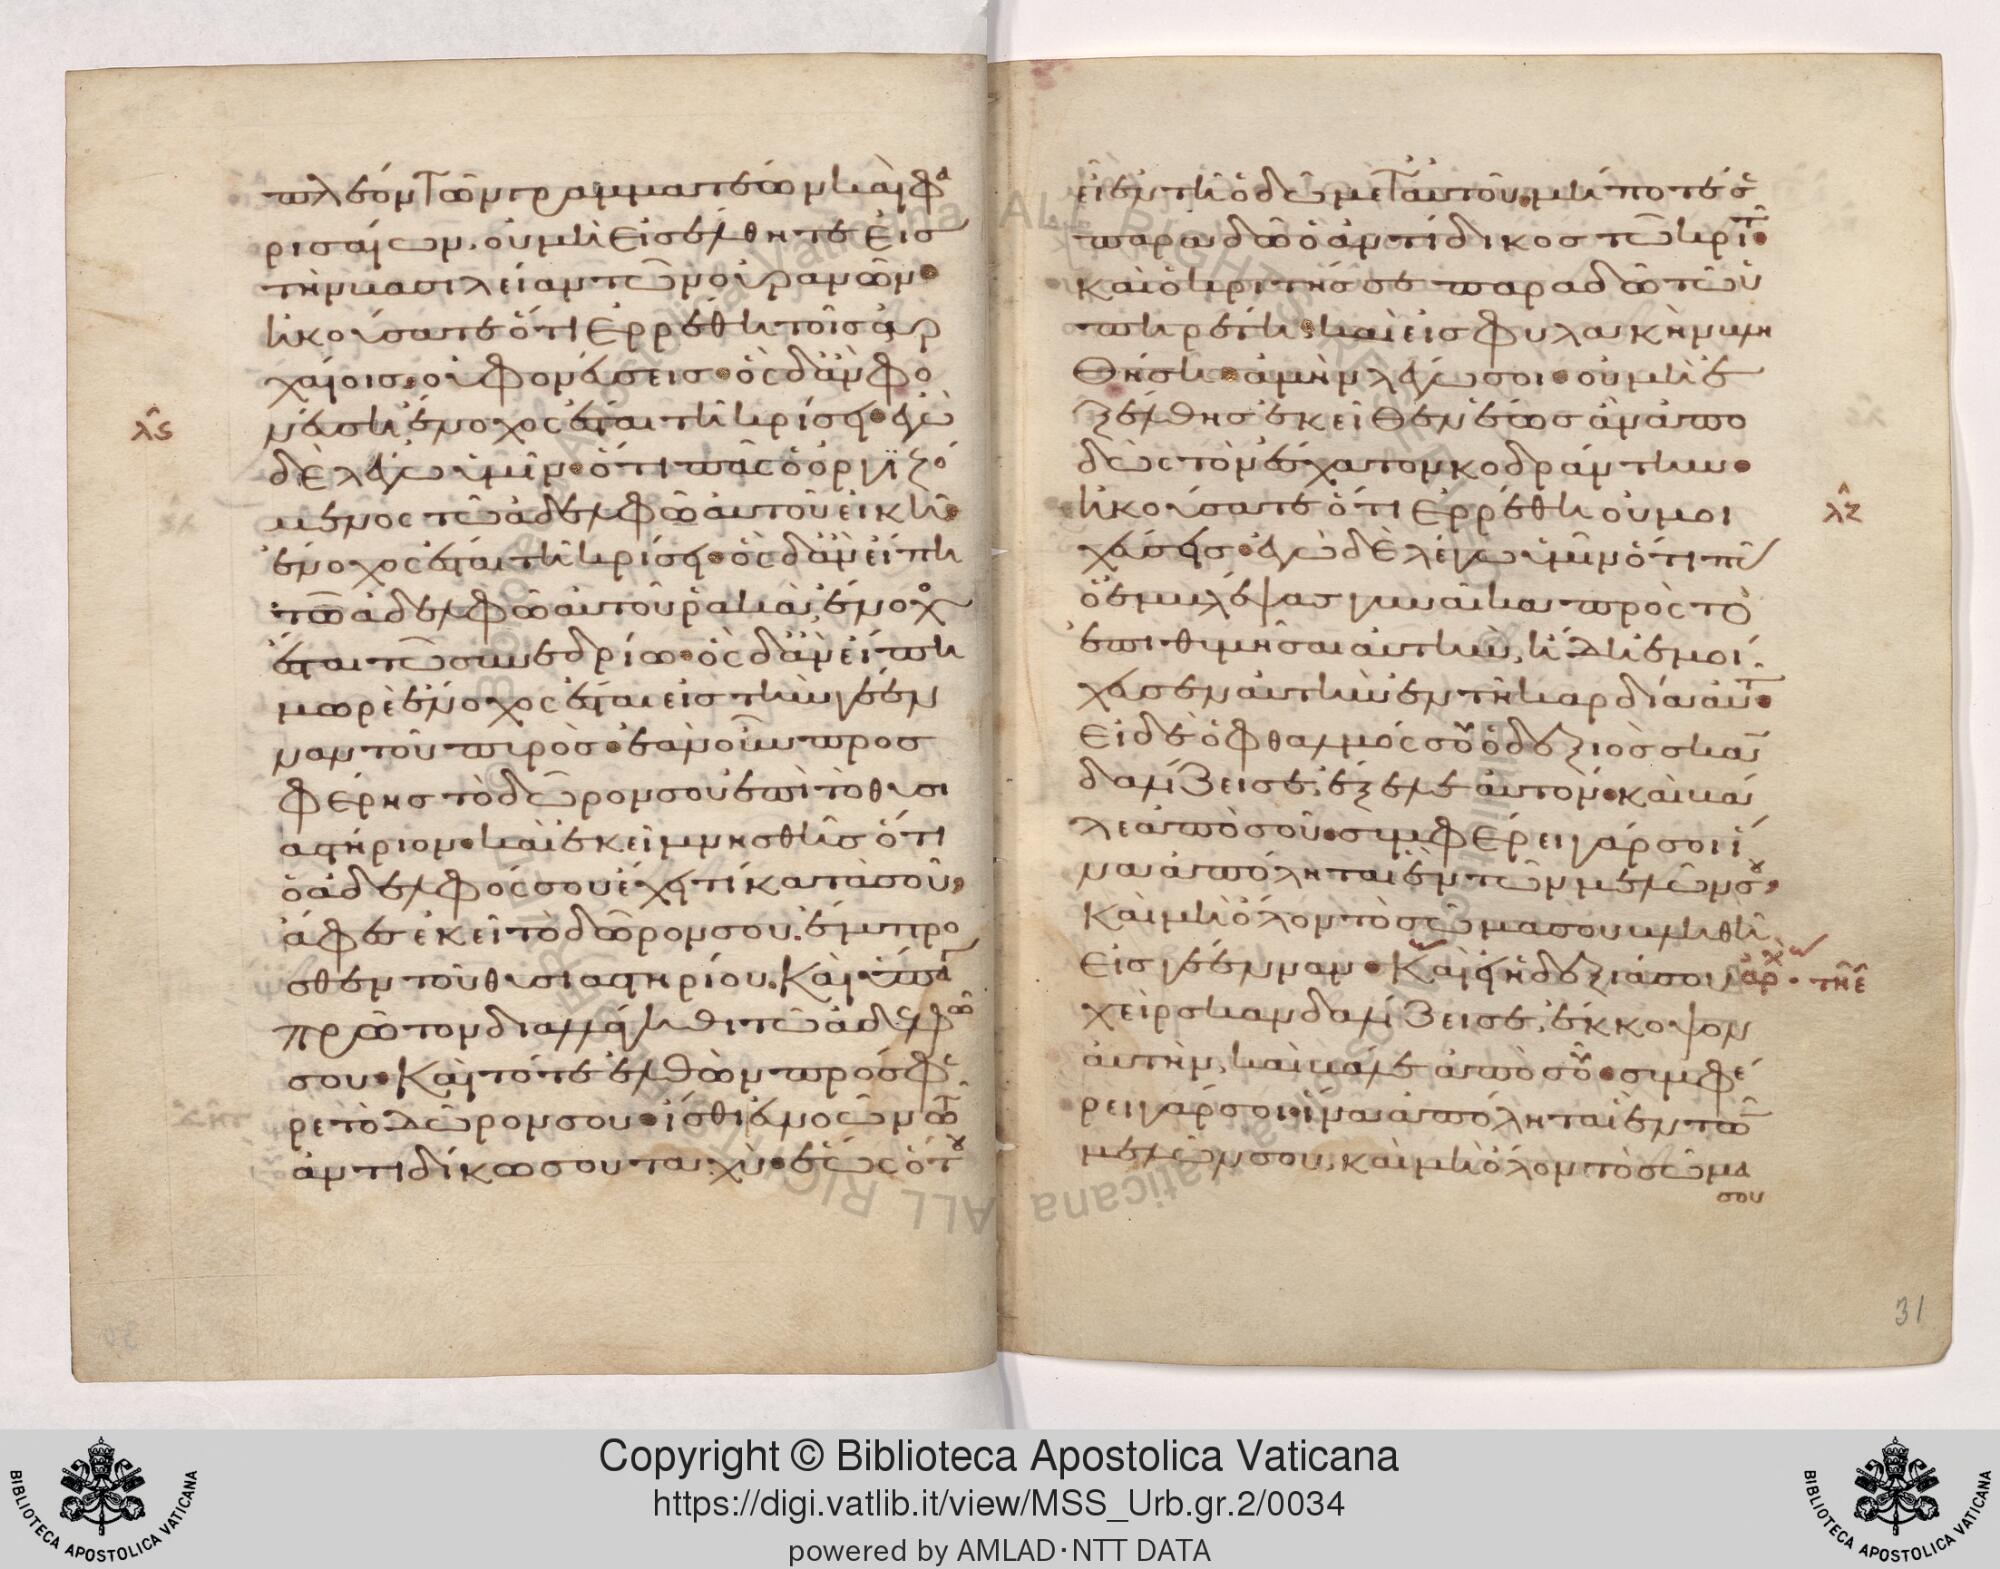 πλέον τῶν γραμματέων καὶ φα
ρισαίων, οὐ μὴ εἰσέλθητε εἰς
τὴν βασιλείαν τῶν οὐρανῶν·
ἠκούσατε ὅτι ἐρρέθη τοῖς ἀρ
χαίοις, οὐ φονεύσεις· ὃς δ' ἂν φο
νεύσῃ ἔνοχος ἔσται τῇ κρίσει· ἐγὼ
λς
δὲ λέγω ὑμῖν· ὅτι πᾶς ὁ ὀργιζό
μενος τῶ ἀδελφῶ αὐτοῦ εἰκῆ·
ἔνοχος ἔσται τῇ κρίσει· ὃς δ' ἂν εἴπη
τῶ ἀδελφῶ αὐτοῦ ῥακά, ἔνοχο
ἔσται τῶ συνεδρίω· ὃς δ' ἂν εἴπη
μωρὲ ἔνοχος ἔσται εἰς τὴν γέεν
ναν τοῦ πυρός· ἐὰν οὖν προσ
φέρης τὸ δῶρον σου ἐπὶ τὸ θυσι
αστήριον· καὶ ἐκεῖ μνησθῆς ὅτι
ὁ ἀδελφός σου ἔχει τί κατὰ σοῦ,
ἄφες ἐκεῖ τὸ δῶρον σου. ἔμπρο
σθεν τοῦ θυσιαστηρίου. Καὶ ὕπαγ
πρῶτον διαλλάγηθι τῶ ἀδελφῶ
σου· Καὶ τότε ἐλθὼν πρόσφε
ρε τὸ δῶρον σου· ἴσθι εὐνοῶν τῶ
ἀντιδίκω σου ταχύ· ἕως ὅτου
εἶ ἐν τῆ ὁδῶ μετ' αὐτοῦ, μήποτέ σε
παραδῶ ὁ ἀντίδικος τῶ κριτῆ·
καὶ ὁ κριτής σε παραδῶ τῶ ὑ
πηρέτη, καὶ εἰς φυλακὴν βλη
θήση· ἀμὴν λέγω σοι· οὐ μὴ ἐ
ξέλθης ἐκεῖθεν ἕως ἂν ἀπο
δῶς τὸν ἔσχατον κοδράντην·
ἠκούσατε ὅτι ἐρρέθη οὐ μοι
λζ
χεύσεις· ἐγὼ δὲ λέγω ὑμῖν ὅτι πᾶς
ὁ ἐμβλέψας γυναῖκα πρὸς τὸ
ἐπιθυμῆσαι αὐτὴν, ἤδη ἐμοί
χευσεν αὐτὴν ἐν τῆ καρδία αὐτ·
Εἰ δὲ ὁ ὀφθαλμός σου ὁ δεξιὸς σκαν
δαλίζει σε, ἔξελε αὐτόν· καὶ βά
λε ἀπὸ σοῦ· συμφέρει γάρ σοι ἵ
να ἀπόληται ἓν τῶν μελῶν σου,
καὶ μὴ ὅλον τὸ σῶμα σου βληθῆ
εἰς γέενναν· Καὶ εἰ ἡ δεξιά σου
ἀρχ · τῆ ε
χεὶρ σκανδαλίζει σε, ἔκκοψον
αὐτὴν, καὶ βάλε ἀπὸ σοῦ· συμφέ
ρει γάρ σοι ἵνα ἀπόληται ἓν τῶν
μελῶν σου, καὶ μὴ ὅλον τὸ σῶμα
σου
31
Copyright © Biblioteca Apostolica Vaticana
https://digi.vatlib.it/view/MSS_Urb.gr.2/0034
powered by AMLAD·NTT DATA
BIBLIOTECA APOSTOLICA VATICANA
BIBLIOTECA APOSTOLICA VATICANA